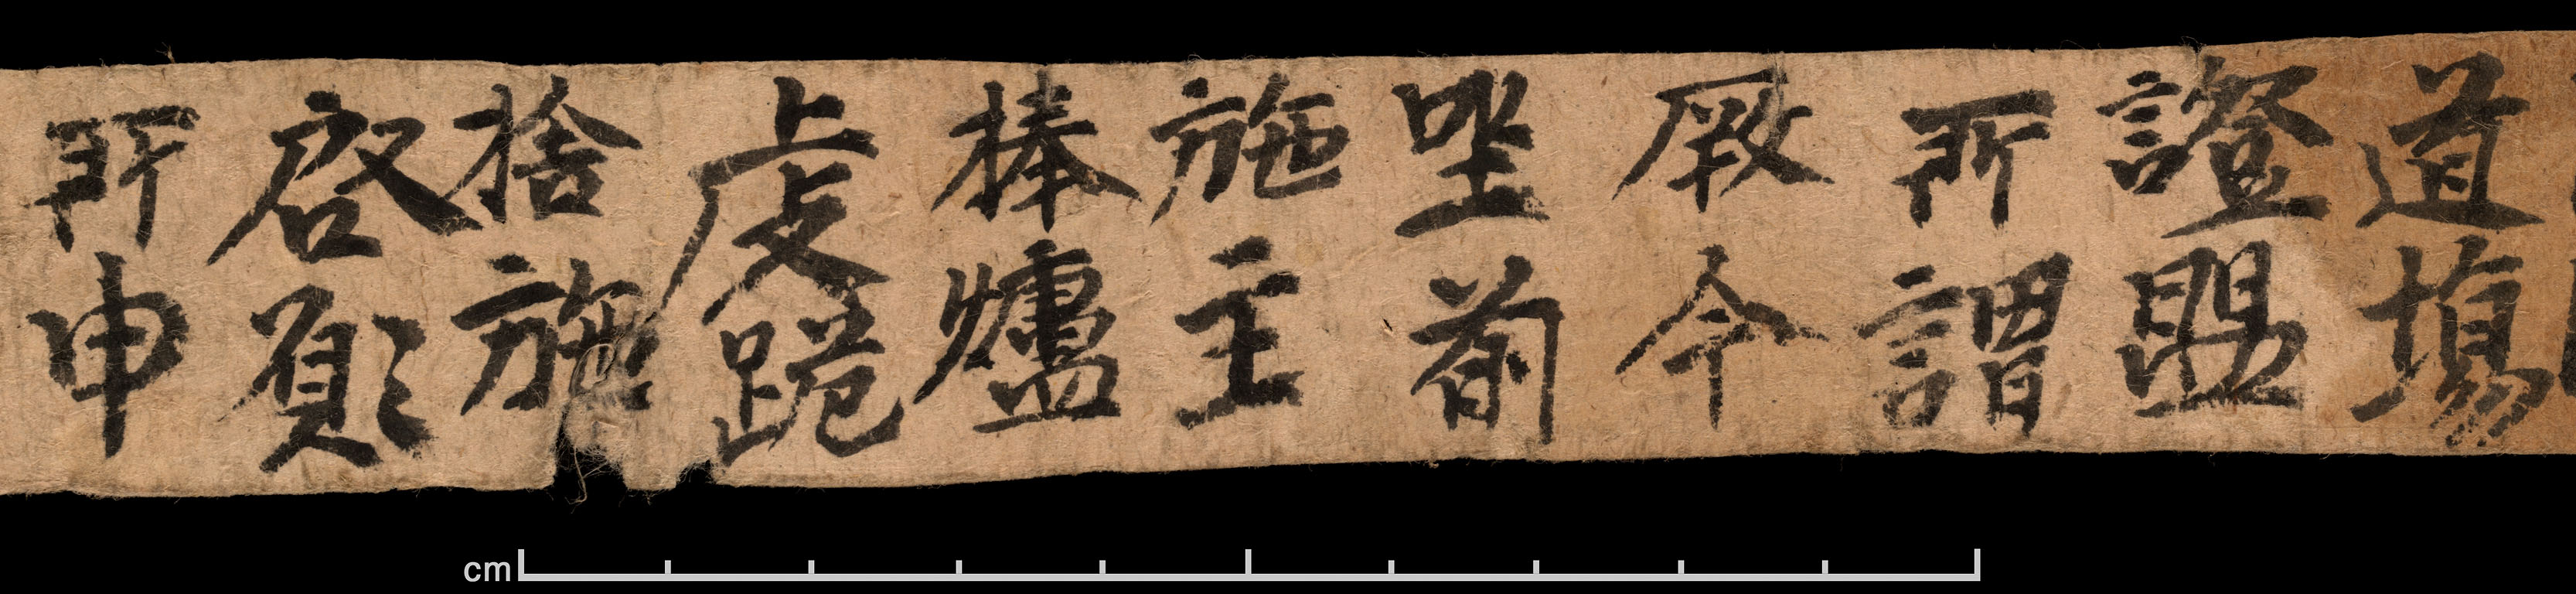 道塲
證盟
所謂
厥今
坐前
施主
捧爐
虔跪
捨施
啓願
所申